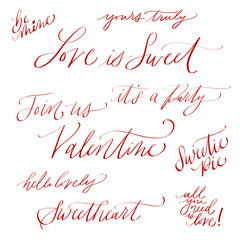 be
mine
yours truly
Love is Sweet
Join us
it's a party
Valentine
Sweetie
pie
hello lovely
Sweetheart
all
you
need
is
love!